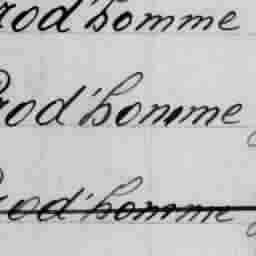 rod'homme
rod'homme
rod'homme